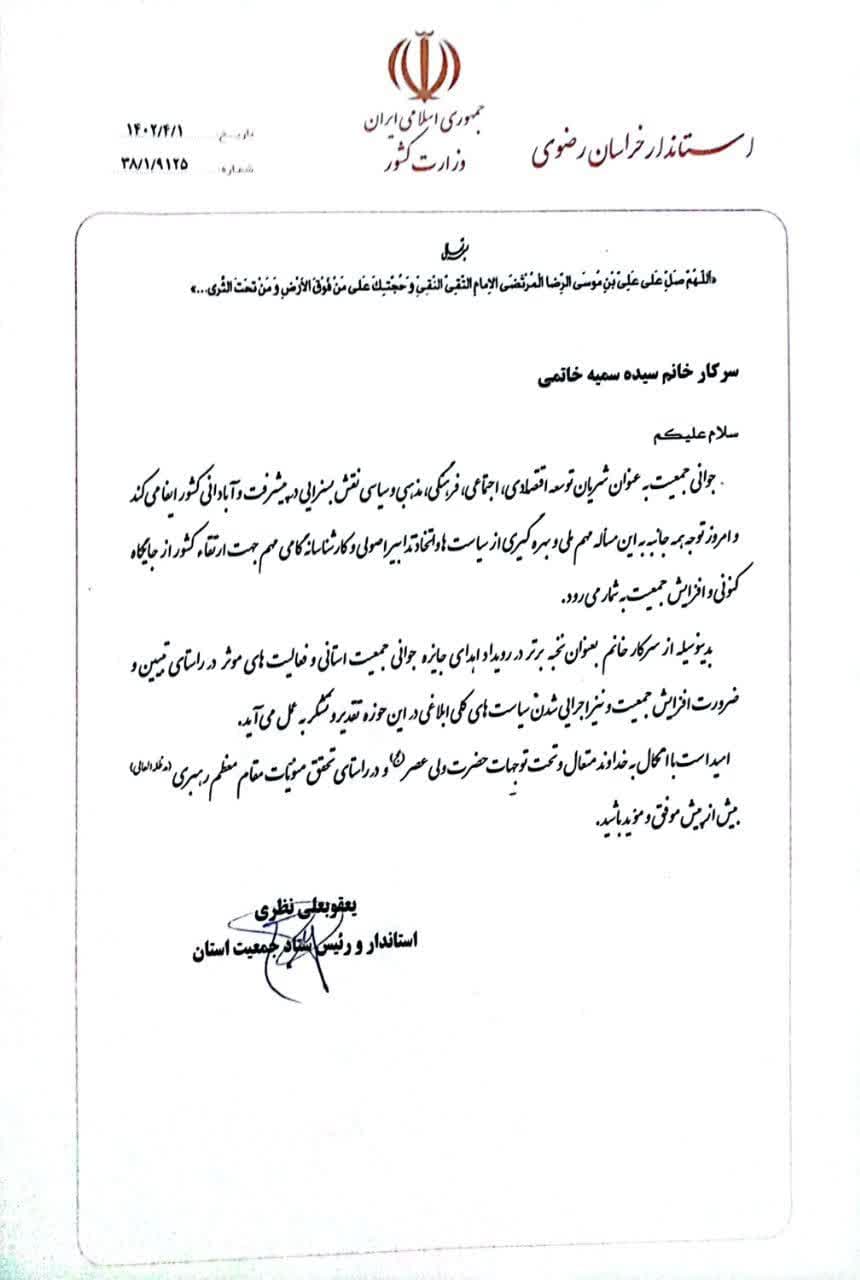 جمهوری اسلامی ایران
وزارت کشور
استاندار خراسان رضوی
تاریخ: ۱۴۰۲/۴/۱
شماره: ۳۸/۱/۹۱۲۵
«اَللّهُمَّ صَلِّ عَلی عَلِیِّ بْنِ مُوسَی الرِّضا الْمُرْتَضَی الاِمامِ التَّقِیِّ النَّقِیِّ وَ حُجَّتِكَ عَلی مَنْ فَوْقَ الاَرْضِ وَ مَنْ تَحْتَ الثَّری...»
سرکار خانم سیده سمیه خاتمی
سلام علیکم
جوانی جمعیت به عنوان شریان توسعه اقتصادی، اجتماعی، فرهنگی، مذهبی و سیاسی نقش بسزایی در پیشرفت و آبادانی کشور ایفا می کند
و امروز توجه همه جانبه به این مسأله مهم ملی و بهره گیری از سیاست ها و اتخاذ تدابیر اصولی و کارشناسانه گامی مهم جهت ارتقاء کشور از جایگاه
کنونی و افزایش جمعیت به شمار می رود.
بدینوسیله از سرکار خانم بعنوان نخبه برتر در رویداد اهدای جایزه جوانی جمعیت استانی و فعالیت های موثر در راستای تبیین و
ضرورت افزایش جمعیت و نیز اجرایی شدن سیاست های کلی ابلاغی در این حوزه تقدیر و تشکر به عمل می آید.
امید است با اتکال به خداوند متعال و تحت توجهات حضرت ولی عصر (عج) و در راستای تحقق منویات مقام معظم رهبری (مدظله العالی)
بیش از پیش موفق و موید باشید.
یعقوبعلی نظری
استاندار و رئیس ستاد جمعیت استان